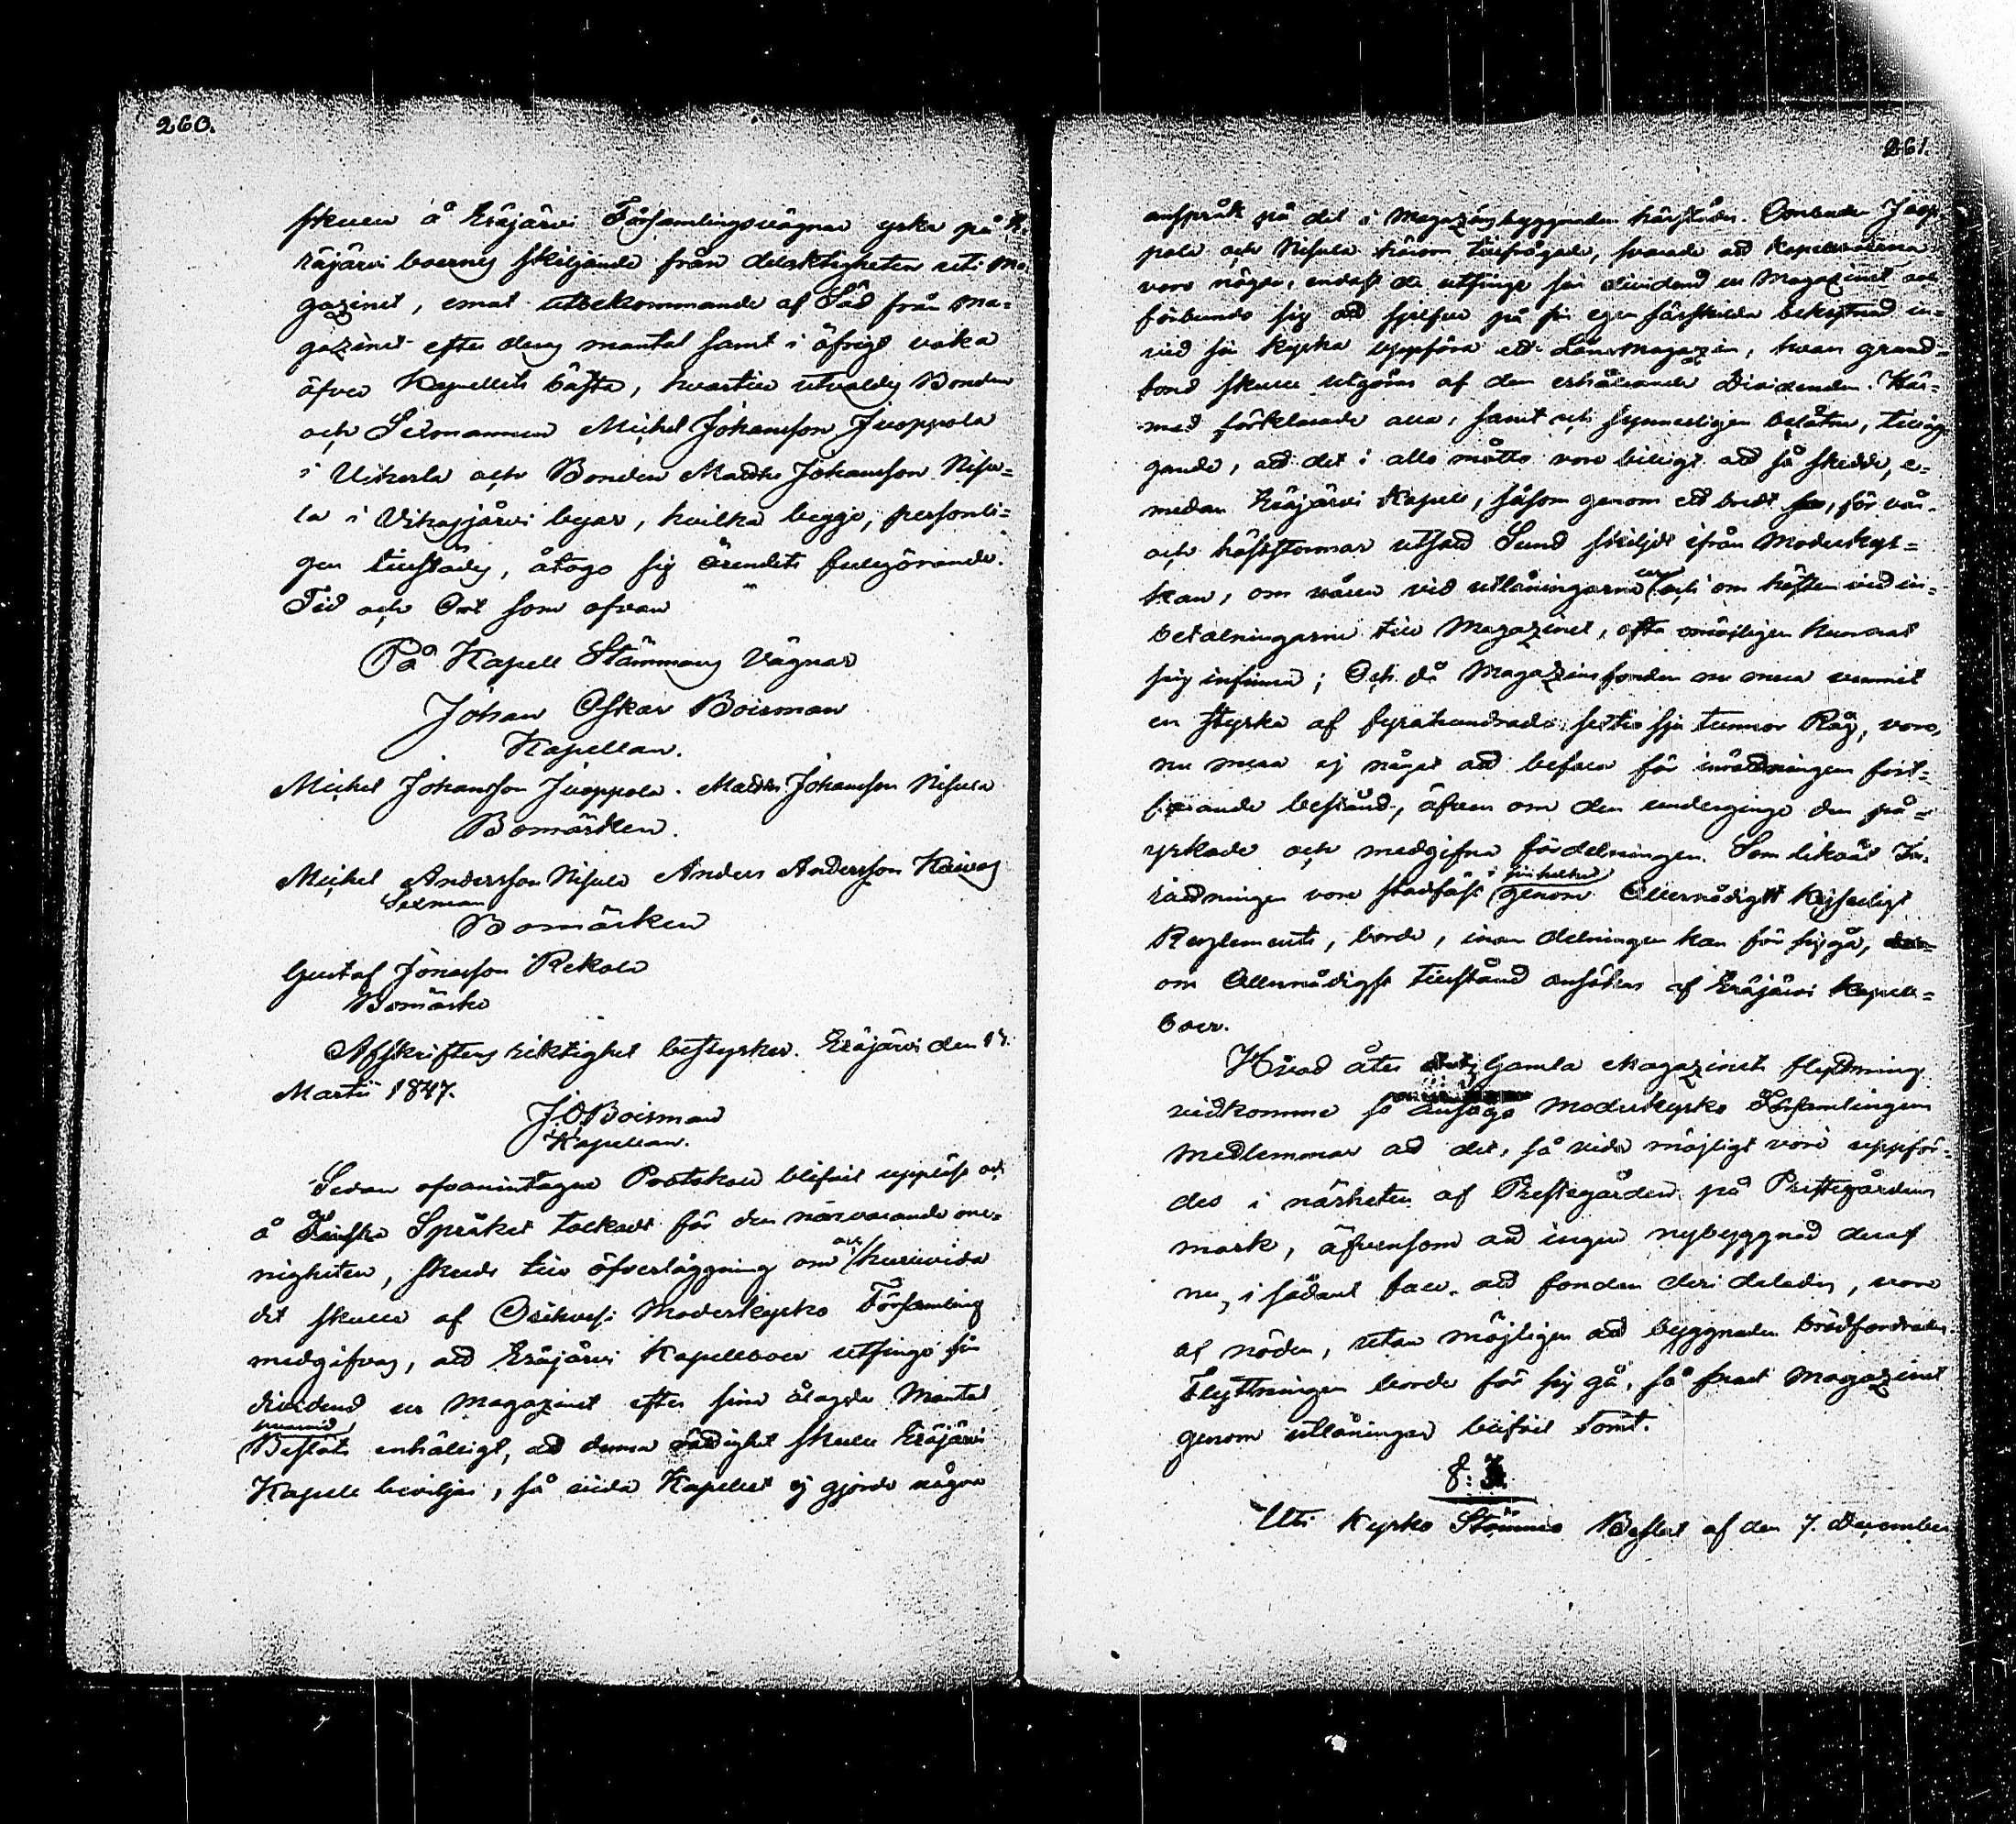 260.
skulle å Eräjärvi Församlingsvägnar yrka på E-
räjärvi boernes skiljande från delaktigheten uti Ma-
gazinet, samt utbekommande af Säd från Ma-
gazinet efter deras mantal samt i öfrigt vaka
öfver Kapellets bästa, hvartill utvaldes Bonden
och Sexmannen Michel Johansson Juoppola
i Uiherla och Bonden Matths Johansson Nisu-
la i Vihasjärvi byar, hvilka begge, personli-
gen tillstädes, åtogo sig ärendets fullgörande.
Tid och Ort som ofvan
På Kapell Stämmans Vägnar
Johan Oskar Boisman
Kapellan.
Michel Johansson Juoppola. Matths Johansson Nisula
Bomärken.
Michel Andersson Nisula Anders Andersson Kaivos
Sexman
Bomärken
Gustaf Jönasson Rekola
Bomärke
Afskriftens riktighet bestyrker. Eräjärvi den
Martii 1847.
J.O. Boisman
Kapellan.
Sedan ofvanintagne Protokoll blifvit uppläst och
å Finska Språket tolkadt för den närvarande me-
nigheten, skreds till öfverläggning om huruvida
det skulle af Orihvesi Moderkyrko Församling
medgifvas, att Eräjärvi Kapellboer utfingo sin
dividend ur Magazinet efter sina ålagda Mantal
Beslöts enhälligt, att denna rättighet skulle Eräjärvi
Kapell beviljas, så vida Kapellet ej gjorde några
261.
anspråk på del i Magazinsbyggnaden härstädes. Ombuden Juop-
pola och Nisula härom tillfrågade, svarade att Kapellboerna
voro nöjde, endast de utfingo sin dividend ur Magazinet och
förbundo sig att sjelfve på sin egen särskilda bekostnad in-
vid sin kyrka uppföra ett Lånemagazin, hvars grund-
fond skulle utgöras af den erhållande Dividenden. Här-
med förklarade alla, samt och synnerligen belåtne, tillägg-
gande, att det i allo måtto vore billigt att så skedde, e-
medan Eräjärvi Kapell, såsom genom ett bredt, för vår-
och höststormar utsatt Sund skiljdt ifrån Moderkyr-
kan, om våren vid utlåningarne och om hösten vid in-
betalningarne till Magazinet, ofta omöjligen kunnat
sig infinna; Och då Magazinsfonden nu mera vunnit
en styrka af fyrahundrade sextio sju tunnor Råg, vore,
nu mera ej något att befara för inrättningens fort-
farande bestånd, äfven om den underginge den på-
yrkade och medgifna fördelningen. Som likväl In-
rättningen vore stadfäst i sin helhet genom Allernådigst Kejserligt
Reglemente, borde, innan delningen kan för sig gå,
om Allernådigst tillstånd ansökas af Eräjärvi Kapell-
boer.
Hvad åter Gamla Magazinets flyttning
vidkomme så ansågo Moderkyrko Församlingens
medlemmar att det, så vida möjligt vore uppför-
des i närheten af Prestegården på Prestegårdens
mark, äfvensom att ingen nybyggnad deraf
nu, i sådant fall, att fonden deri delades, vore
af nöden, utan möjligen att byggnaden brädfordrades.
Flyttningen borde för sig gå, så snart Magazinet
genom utlåningar blifvit tomt.
§. 3.
Uti Kyrko Stämmo Beslut af den 7. December